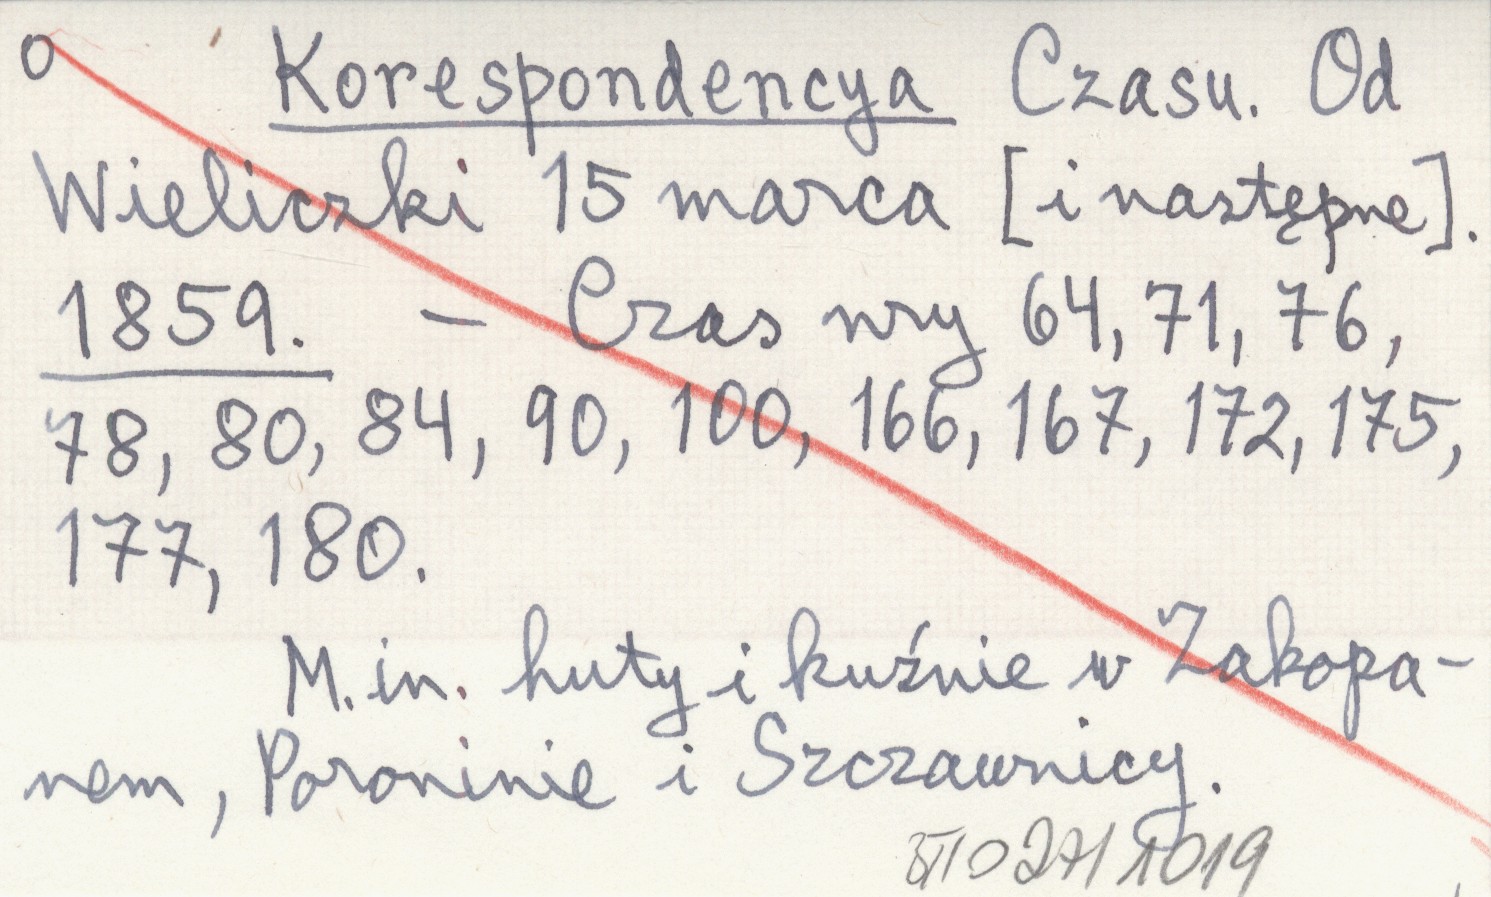 o Korespondencya Czasu. Od
Wieliczki 15 marca [i następne].
1859. – Czas nry 64, 71, 76,
78, 80, 84, 90, 100, 166, 167, 172, 175,
177, 180.
M. in. huty i kuźnie w Zakopa-
nem, Poroninie i Szczawnicy.
1019